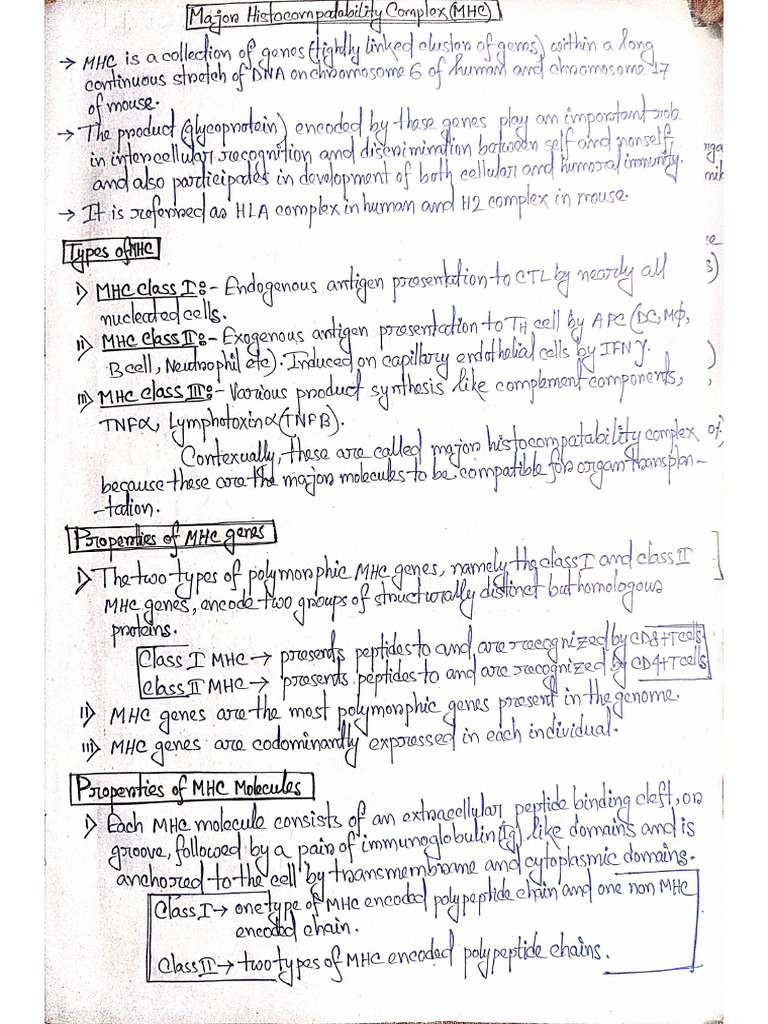 Major Histocompatability Complex (MHC)
→ MHC is a collection of genes (tightly linked cluster of genes) within a long
continuous stretch of DNA on chromosome 6 of human and chromosome 17
of mouse.
→ The product (glycoprotein) encoded by these genes play an important role
in intercellular recognition and discrimination between self and nonself,
and also participates in development of both cellular and humoral immunity.
→ It is referred as HLA complex in human and H2 complex in mouse.
Types of MHC
i) MHC class I:- Endogenous antigen presentation to CTL by nearly all
nucleated cells.
ii) MHC class II:- Exogenous antigen presentation to TH cell by APC (DC, MΦ,
B cell, Neutrophil etc). Induced on capillary endothelial cells by IFN γ.
iii) MHC class III:- Various product synthesis like complement components,
TNFα, Lymphotoxin α (TNFβ).
Contexually, these are called major histocompatability complex of,
because these are the major molecules to be compatible for organ transplan-
-tation.
Properties of MHC genes
i) The two types of polymorphic MHC genes, namely the class I and class II
MHC genes, encode two groups of structurally distinct but homologous
proteins.
Class I MHC → presents peptides to and are recognized by CD8+ T cells
Class II MHC → presents peptides to and are recognized by CD4+ T cells
ii) MHC genes are the most polymorphic genes present in the genome.
iii) MHC genes are codominantly expressed in each individual.
Properties of MHC Molecules
i) Each MHC molecule consists of an extracellular peptide binding cleft, or
groove, followed by a pair of immunoglobulin (Ig) like domains and is
anchored to the cell by transmembrane and cytoplasmic domains.
Class I → one type of MHC encoded polypeptide chain and one non MHC
encoded chain.
Class II → two types of MHC encoded polypeptide chains.